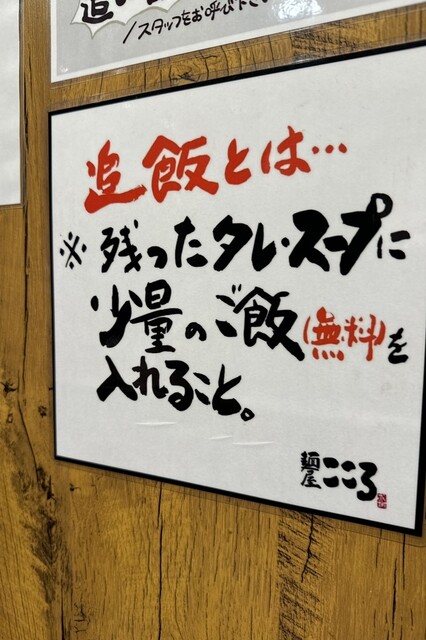 /スタッフをお呼び下さい
追飯とは…
※残ったタレ・スープに
少量のご飯(無料)を
入れること。
麺屋こころ